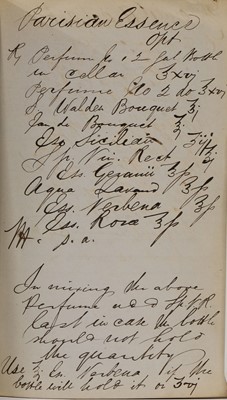 Parisian Essence
Opt
℞ Perfume No 1 2 gal bottle
in cellar ℥xvj
Perfume No 2 do ℥xvj
Walden Bouquet ℥j
Bouquet ℥j
Ess Sicilian ℥ij
Sp. Vin. Rect
Ess. Geranii ℥ß
Aqua Lavand ℥ß
Ess. Verbena ℥ß
Ess. Rosa ℥ß
M. s. a.
In mixing the above
Perfume add Sp. V. R.
last in case the bottle
should not hold
the quantity
Use ℥ Es. Verbena if the
bottle will hold it or ℥vj